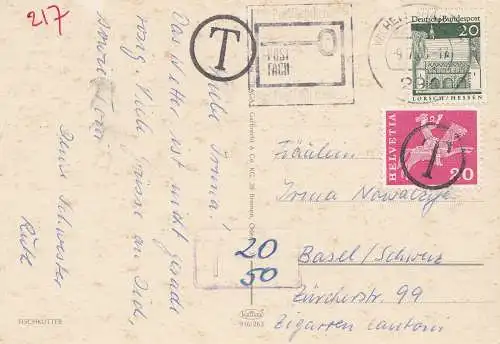 217
T
POST
FACH
Deutsche Bundespost
20
LORSCH/HESSEN
HELVETIA
20
T
Liebe Irma!
Das Wetter ist nicht gerade
rosig. Viele Grüsse an Dich,
sowie Toni
Deine Schwester
Ruth
Fräulein
Irma Nowatzyk
Basel/Schweiz
Zürcherstr. 99
Zigarren Cantoni
T
20
50
FISCHKUTTER
916/263